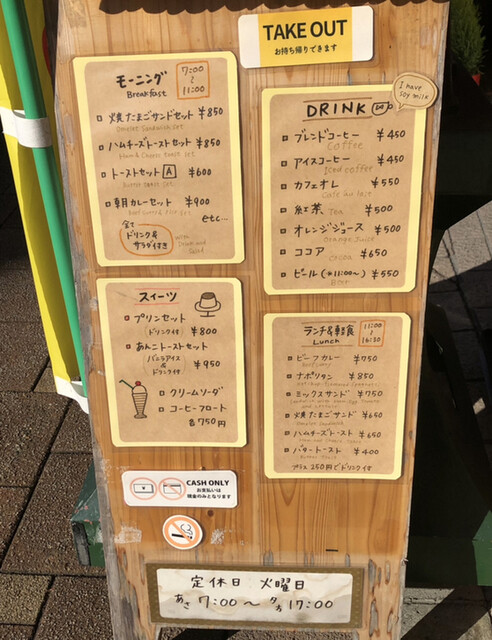 TAKE OUT
お持ち帰りできます
モーニング
Breakfast
7:00
~
11:00
焼たまごサンドセット ¥850
Omelet Sandwich set
ハムチーズトーストセット ¥850
Ham & Cheese toast set
トーストセット A ¥600
Butter toast set
朝カレーセット ¥900
etc...
全て
ドリンク&
サラダ付き
with
Drink and
Salad
I have
soy milk
DRINK
ブレンドコーヒー ¥450
Coffee
アイスコーヒー ¥450
Iced coffee
カフェオレ ¥550
Cafe au lait
紅茶 Tea ¥500
オレンジジュース ¥500
Orange Juice
ココア ¥650
Cocoa
ビール(※11:00~) ¥550
Beer
スイーツ
プリンセット
(ドリンク付) ¥800
あんこトーストセット
(バニラアイス
&
ドリンク付) ¥950
クリームソーダ
コーヒーフロート
各750円
ランチ&軽食
Lunch
11:00
~
16:30
ビーフカレー ¥750
Beef curry
ナポリタン ¥850
ミックスサンド ¥750
焼たまごサンド ¥650
Omelet Sandwich
ハムチーズトースト ¥650
Ham and Cheese toast
バタートースト ¥400
Butter toast
プラス250円でドリンク付
CASH ONLY
お支払いは
現金のみとなります
定休日 火曜日
あさ7:00~夕方17:00